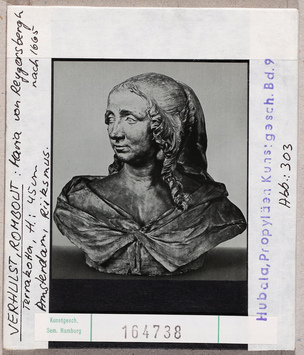 VERHULST, ROMBOUT: Maria van Reygersbergh
nach 1665
Terrakotta, H: 45cm
Amsterdam, Rijksmus.
Hubala, Propyläen Kunstgesch. Bd. 9
Abb. 303
Kunstgesch.
Sem. Hamburg
164738